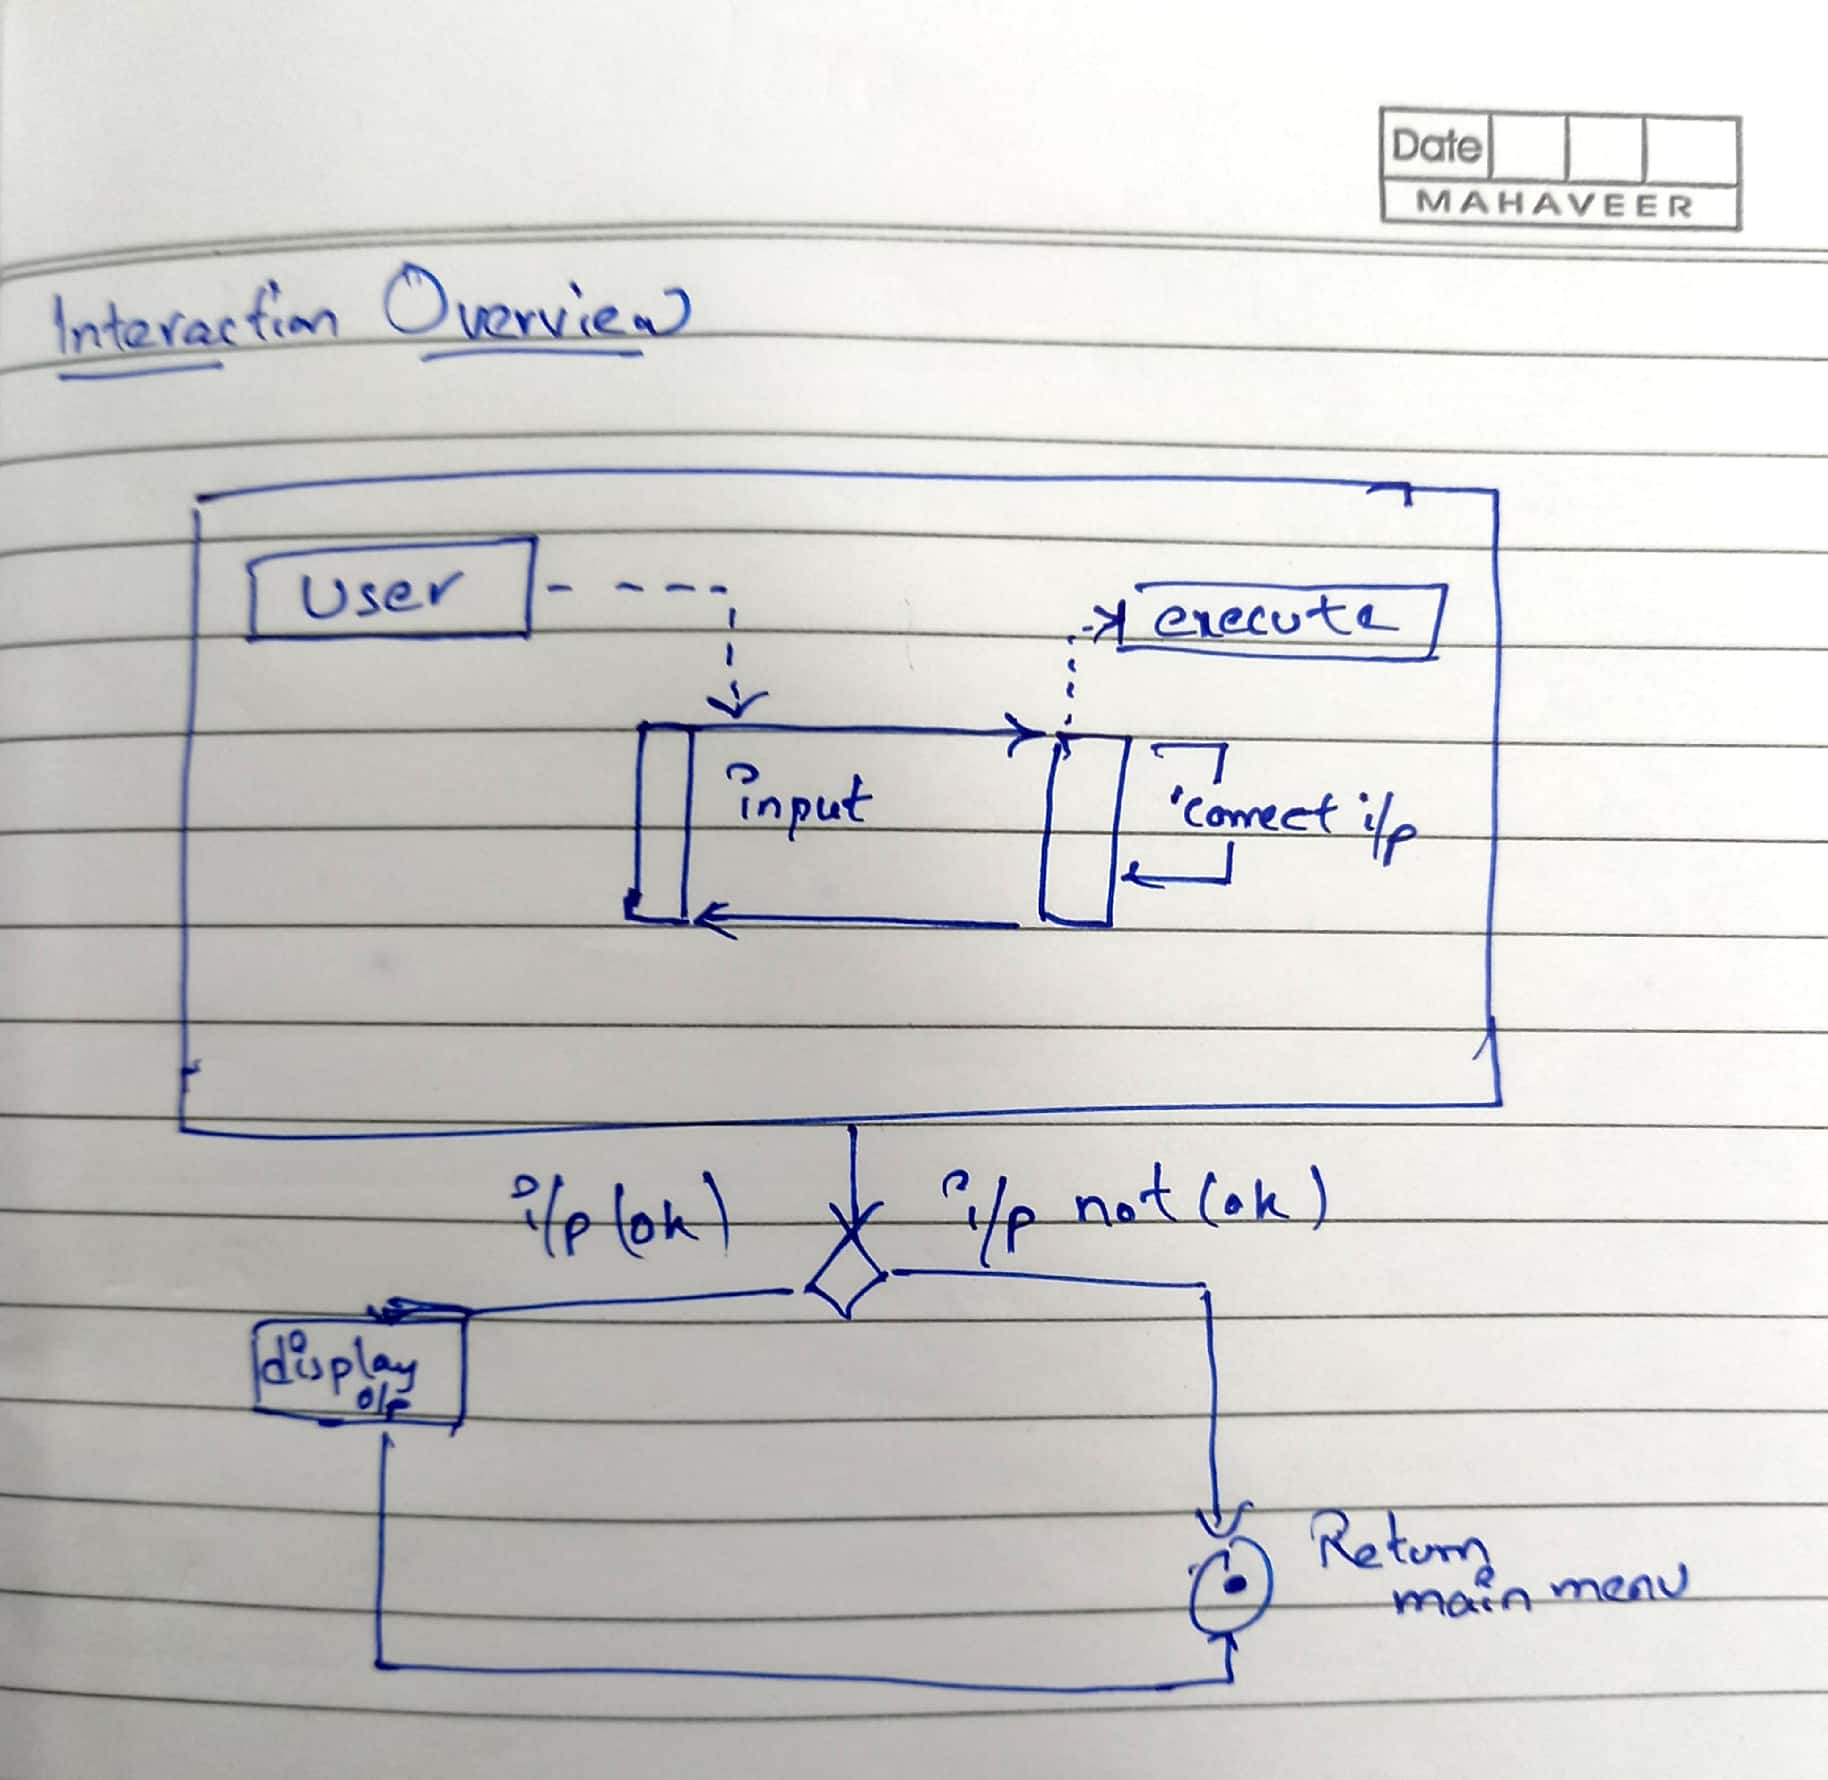 Date
MAHAVEER
Interaction Overview
User
execute
input
correct i/p
i/p (ok)
i/p not (ok)
display
o/p
Return
main menu